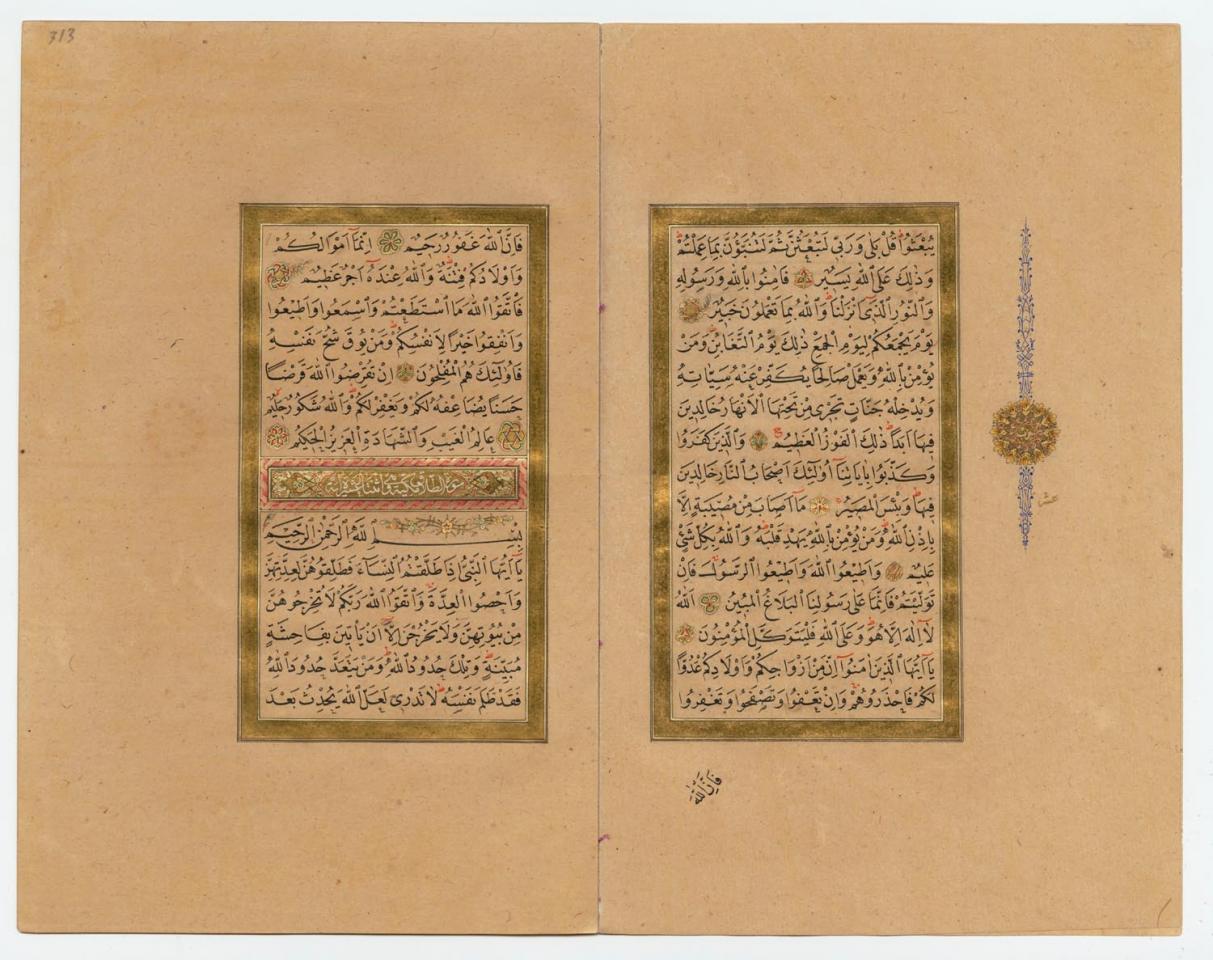 يُبْعَثُوا قُلْ بَلٰى وَرَبّ۪ى لَتُبْعَثُنَّ ثُمَّ لَتُنَبَّؤُنَّ بِمَا عَمِلْتُمْ
وَذٰلِكَ عَلَى اللّٰهِ يَس۪يرٌ فَاٰمِنُوا بِاللّٰهِ وَرَسُولِهِ
وَالنُّورِ الَّذ۪ٓى اَنْزَلْنَا وَاللّٰهُ بِمَا تَعْمَلُونَ خَب۪يرٌ
يَوْمَ يَجْمَعُكُمْ لِيَوْمِ الْجَمْعِ ذٰلِكَ يَوْمُ التَّغَابُنِ وَمَنْ
يُؤْمِنْ بِاللّٰهِ وَيَعْمَلْ صَالِحًا يُكَفِّرْ عَنْهُ سَيِّاٰتِهِ
وَيُدْخِلْهُ جَنَّاتٍ تَجْر۪ى مِنْ تَحْتِهَا الْاَنْهَارُ خَالِد۪ينَ
ف۪يهَا اَبَدًا ذٰلِكَ الْفَوْزُ الْعَظ۪يمُ وَالَّذ۪ينَ كَفَرُوا
وَكَذَّبُوا بِاٰيَاتِنَا اُولٰٓئِكَ اَصْحَابُ النَّارِ خَالِد۪ينَ
ف۪يهَا وَبِئْسَ الْمَص۪يرُ مَا اَصَابَ مِنْ مُص۪يبَةٍ اِلَّا
بِاِذْنِ اللّٰهِ وَمَنْ يُؤْمِنْ بِاللّٰهِ يَهْدِ قَلْبَهُ وَاللّٰهُ بِكُلِّ شَىْءٍ
عَل۪يمٌ وَاَط۪يعُوا اللّٰهَ وَاَط۪يعُوا الرَّسُولَ فَاِنْ
تَوَلَّيْتُمْ فَاِنَّمَا عَلٰى رَسُولِنَا الْبَلَاغُ الْمُب۪ينُ اَللّٰهُ
لَٓا اِلٰهَ اِلَّا هُوَ وَعَلَى اللّٰهِ فَلْيَتَوَكَّلِ الْمُؤْمِنُونَ
يَٓا اَيُّهَا الَّذ۪ينَ اٰمَنُوا اِنَّ مِنْ اَزْوَاجِكُمْ وَاَوْلَادِكُمْ عَدُوًّا
لَكُمْ فَاحْذَرُوهُمْ وَاِنْ تَعْفُوا وَتَصْفَحُوا وَتَغْفِرُوا
فَاِنَّ اللّٰهَ
عشر
313
فَاِنَّ اللّٰهَ غَفُورٌ رَح۪يمٌ اِنَّمَا اَمْوَالُكُمْ
وَاَوْلَادُكُمْ فِتْنَةٌ وَاللّٰهُ عِنْدَهُ اَجْرٌ عَظ۪يمٌ
فَاتَّقُوا اللّٰهَ مَا اسْتَطَعْتُمْ وَاسْمَعُوا وَاَط۪يعُوا
وَاَنْفِقُوا خَيْرًا لِاَنْفُسِكُمْ وَمَنْ يُوقَ شُحَّ نَفْسِه۪
فَاُولٰٓئِكَ هُمُ الْمُفْلِحُونَ اِنْ تُقْرِضُوا اللّٰهَ قَرْضًا
حَسَنًا يُضَاعِفْهُ لَكُمْ وَيَغْفِرْ لَكُمْ وَاللّٰهُ شَكُورٌ حَل۪يمٌ
عَالِمُ الْغَيْبِ وَالشَّهَادَةِ الْعَز۪يزُ الْحَك۪يمُ
بِسْمِ اللّٰهِ الرَّحْمٰنِ الرَّح۪يمِ
يَٓا اَيُّهَا النَّبِىُّ اِذَا طَلَّقْتُمُ النِّسَٓاءَ فَطَلِّقُوهُنَّ لِعِدَّتِهِنَّ
وَاَحْصُوا الْعِدَّةَ وَاتَّقُوا اللّٰهَ رَبَّكُمْ لَا تُخْرِجُوهُنَّ
مِنْ بُيُوتِهِنَّ وَلَا يَخْرُجْنَ اِلَّٓا اَنْ يَاْت۪ينَ بِفَاحِشَةٍ
مُبَيِّنَةٍ وَتِلْكَ حُدُودُ اللّٰهِ وَمَنْ يَتَعَدَّ حُدُودَ اللّٰهِ
فَقَدْ ظَلَمَ نَفْسَهُ لَا تَدْر۪ى لَعَلَّ اللّٰهَ يُحْدِثُ بَعْدَ